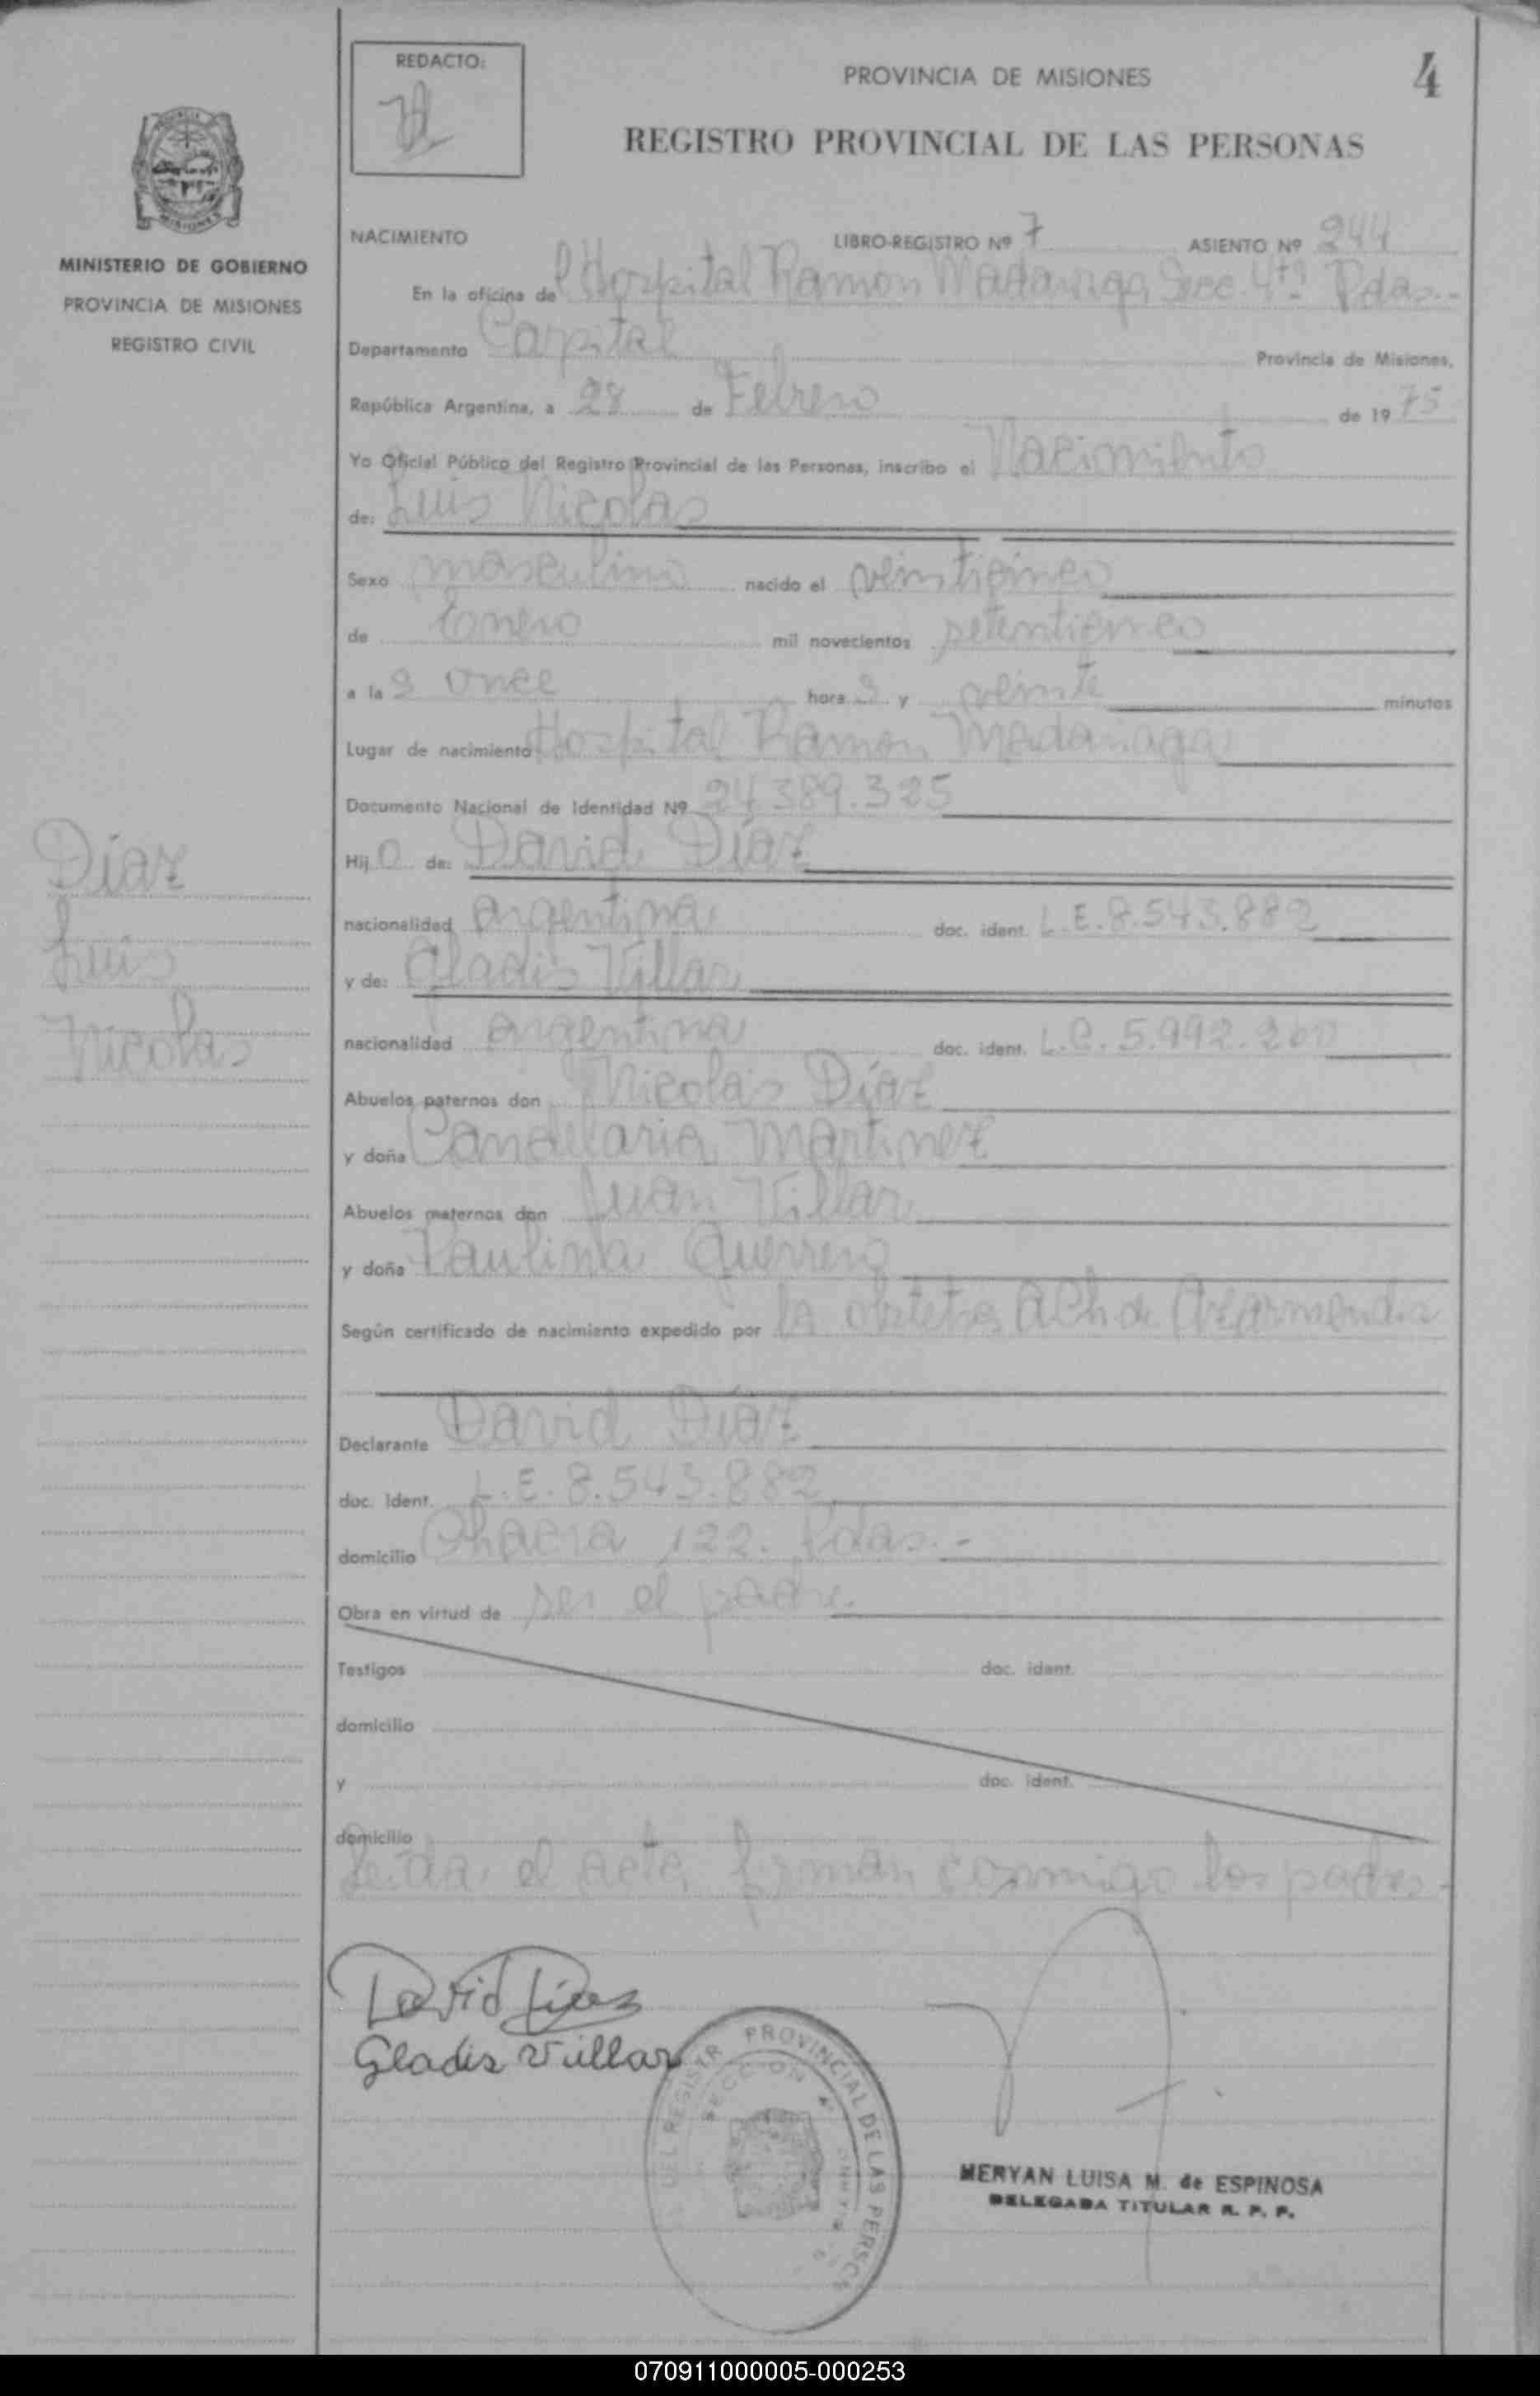 REDACTO:
PROVINCIA DE MISIONES
4
REGISTRO PROVINCIAL DE LAS PERSONAS
MISIONES
MINISTERIO DE GOBIERNO
PROVINCIA DE MISIONES
REGISTRO CIVIL
NACIMIENTO LIBRO-REGISTRO Nº 7 ASIENTO Nº 244
En la oficina del Hospital Ramon Madariaga Secc. 4ta Pdas.-
Departamento Capital Provincia de Misiones,
República Argentina, a 28 de Febrero de 1975
Yo Oficial Público del Registro Provincial de las Personas, inscribo el Nacimiento
de: Luis Nicolas
Sexo masculino nacido el veinticinco
de Enero mil novecientos setenticinco
a las once horas y veinte minutos
Lugar de nacimiento Hospital Ramon Madariaga
Documento Nacional de Identidad Nº 24.389.325
Hijo de: David Díaz
nacionalidad argentina doc. ident. L.E. 8.543.882
y de: Gladis Villar
nacionalidad argentina doc. ident. L.C. 5.992.260
Abuelos paternos don Nicolás Díaz
y doña Candelaria Martinez
Abuelos maternos don Juan Villar
y doña Paulina Guerrero
Según certificado de nacimiento expedido por la obstetra A Ch de
Declarante David Díaz
doc. Ident. L.E. 8.543.882
domicilio Chacra 122. Pdas.-
Obra en virtud de ser el padre.
Testigos doc. ident.
domicilio
y doc. ident.
domicilio
Leida el acta firman conmigo los padres.-
Díaz
Luis
Nicolas
David Díaz
Gladis Villar
PROVINCIAL DE LAS PERSO
SECCION 4
MERYAN LUISA M. de ESPINOSA
DELEGADA TITULAR R. P. P.
070911000005-000253